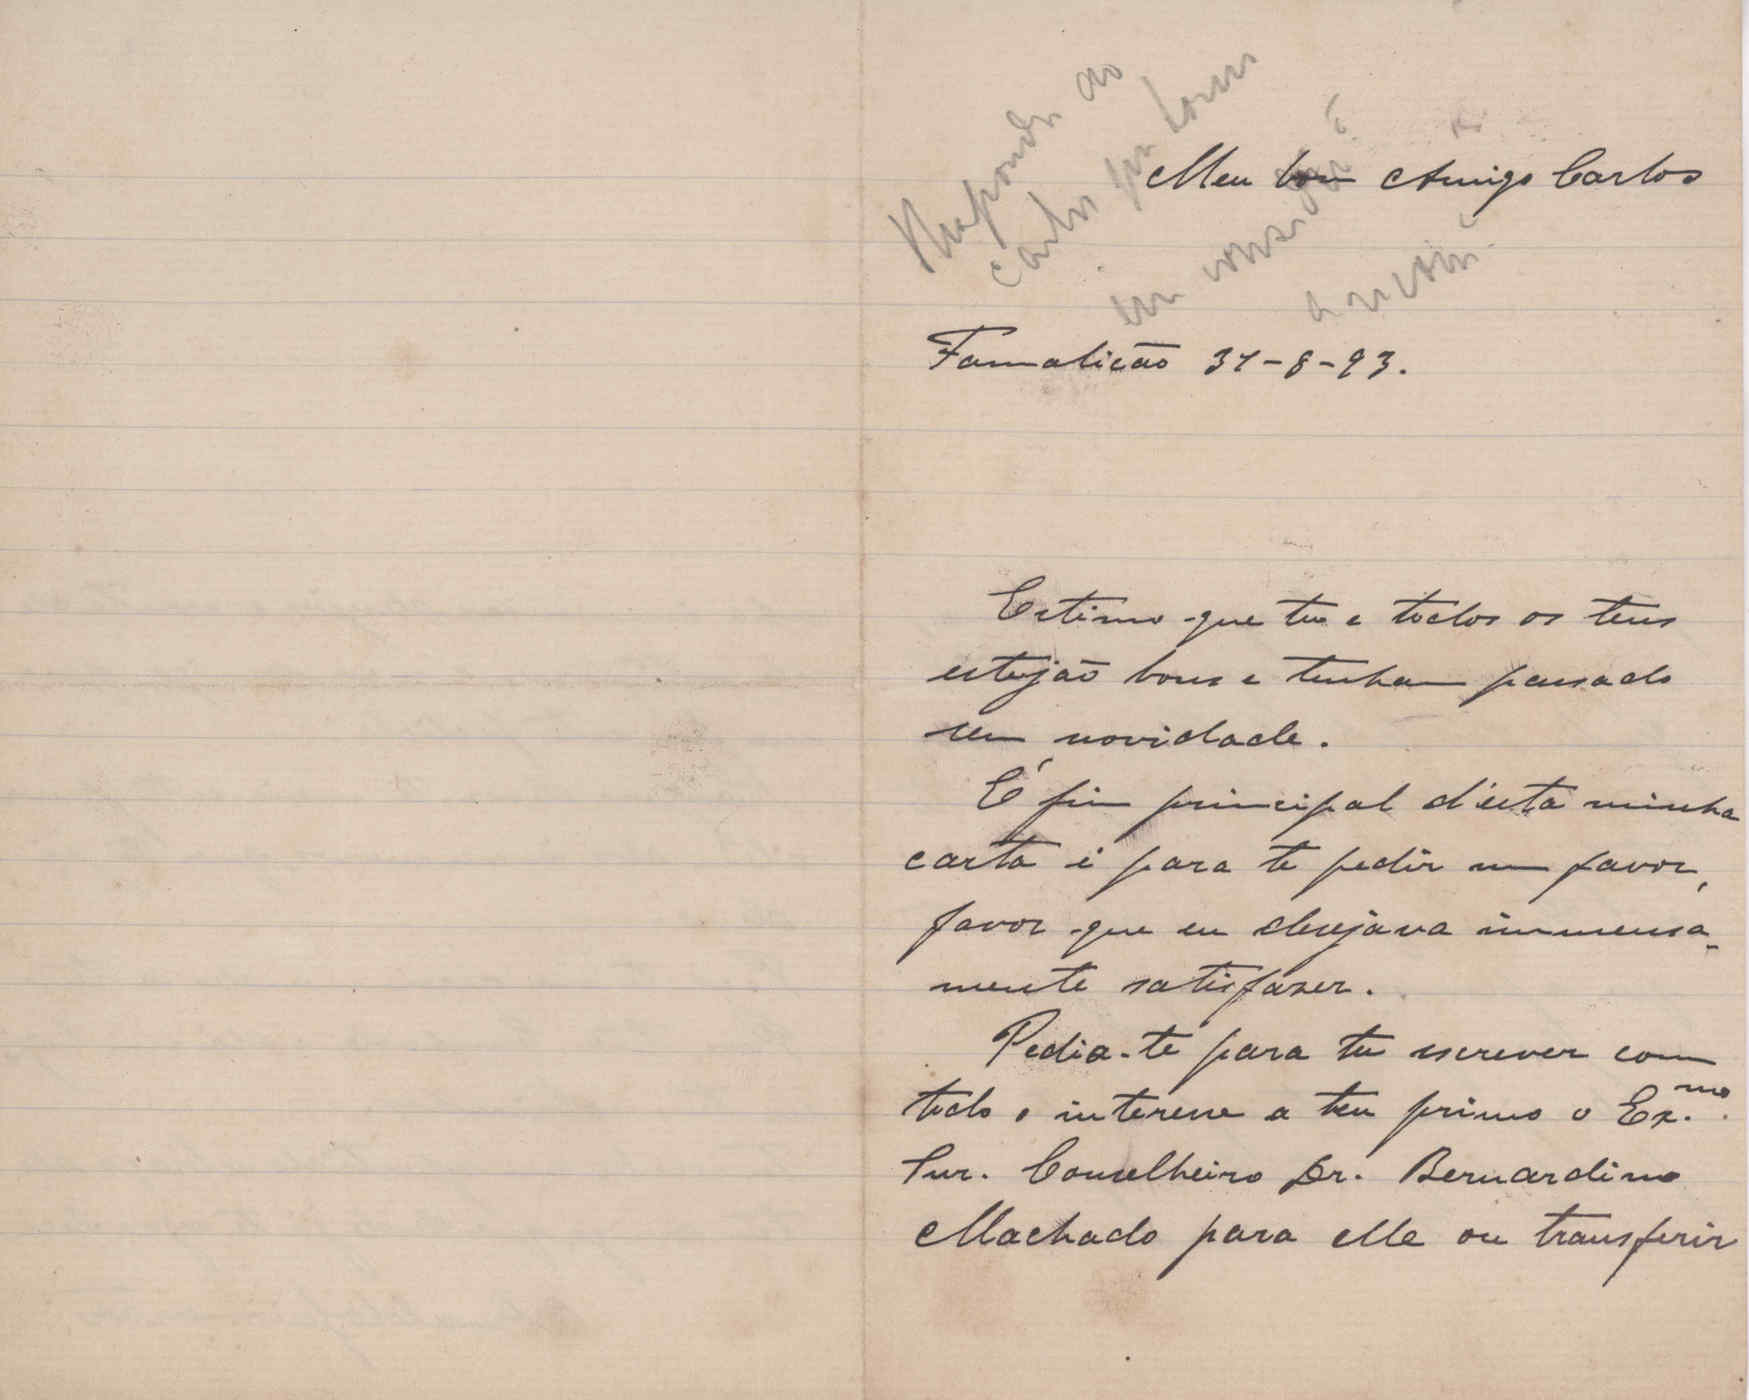 Respondi ao
Carlos
Meu bom Amigo Carlos
Famalicão 31-8-93.
Estimo que tu e todos os teus
estejão bons e tenham passado
sem novidade.
É fim principal d'esta minha
carta é para te pedir um favor,
favor que eu desejava immensa-
mente satisfazer.
Pedia-te para tu escrever com
todo o interesse a teu primo o Ex.mo
Snr. Conselheiro Dr. Bernardino
Machado para elle ou transferir